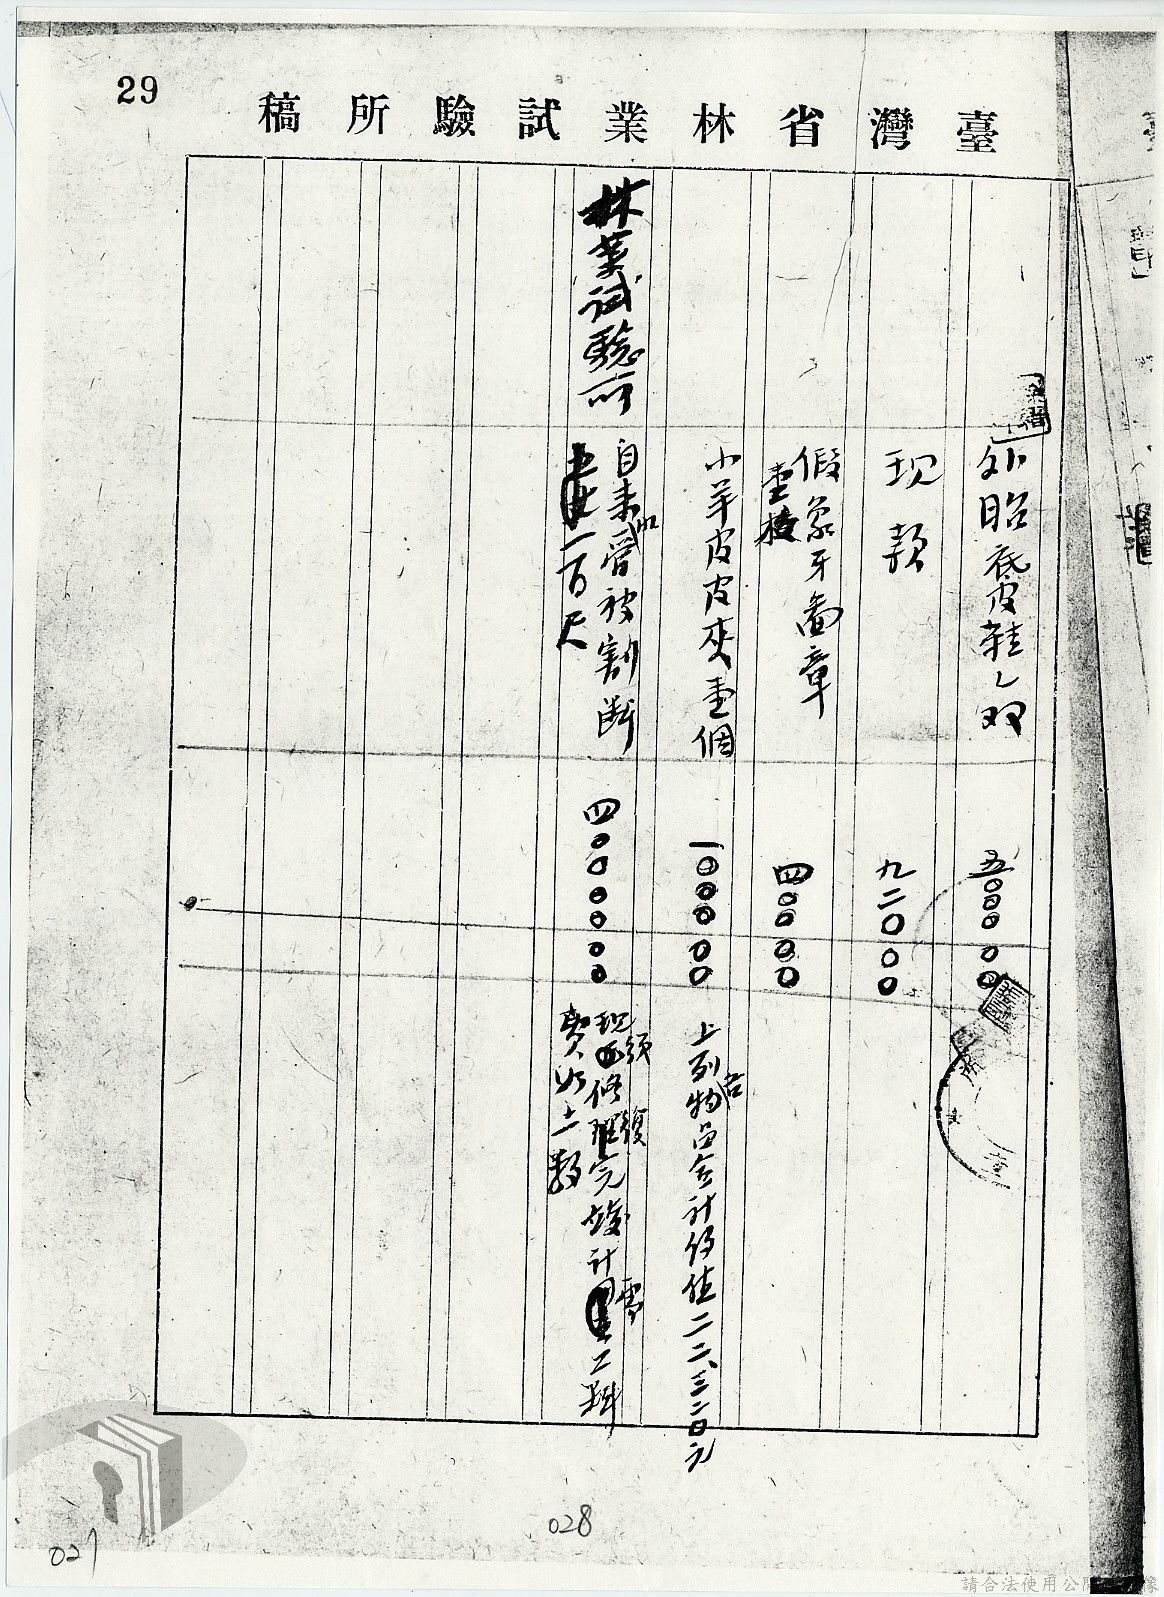 29
臺灣省林業試驗所稿
外昭底皮鞋乙双
五〇〇〇〇〇
現款
九二〇〇〇
假象牙圖章
壹枚
四〇〇〇〇
小羊皮皮夾壹個
一〇〇〇〇〇
上列物品合計價值二二、三二〇元
林業試驗所
自來水管被割断
一百尺
四〇〇〇〇〇〇
修復完竣計需工料
費如上數
028
027
請合法使用公開